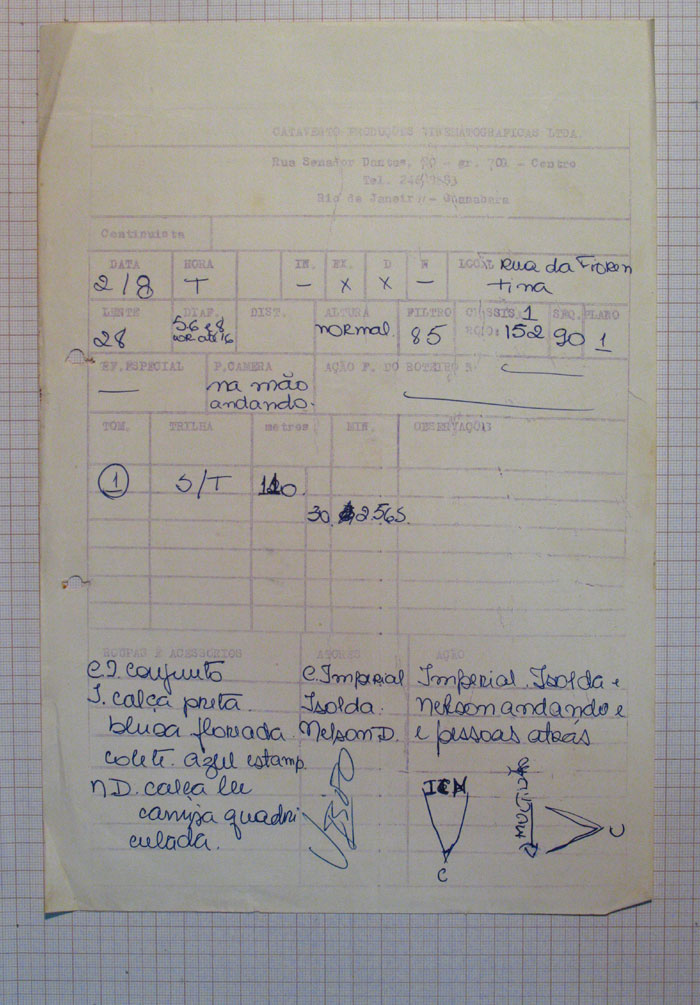 CATAVENTO PRODUÇÕES CINEMATOGRAFICAS LTDA.
Rua Senador Dantas, - gr. 709 - Centro
Tel.
Rio de Janeiro - Guanabara
Continuista
DATA HORA IN. EX. D N LOCAL Rua da Fioren
2/8 T - X X - tina
LENTE DIAF. DIST. ALTURA FILTRO CHASSIS 1 SEQ. PLANO
28 56 e 8 normal. 85 ROLO: 152 90 1
EF.ESPECIAL P.CAMERA AÇÃO P. DO ROTEIRO
— na mão
andando.
TOM. TRILHA metros MIN. OBSERVAÇÕES
1 S/T 120
30 2.565.
ROUPAS E ACESSORIOS ATORES AÇÃO
C.I. conjunto C. Imperial Imperial. Isolda e
I. calça preta Isolda. Nelson andando e
blusa floriada Nelson D. e pessoas atrás
colete azul estamp.
N.D. calça lee
camisa quadri
culada.
VISTO
ICN
C